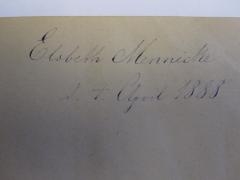 Elsbeth Mennicke
d. 7. April 1888